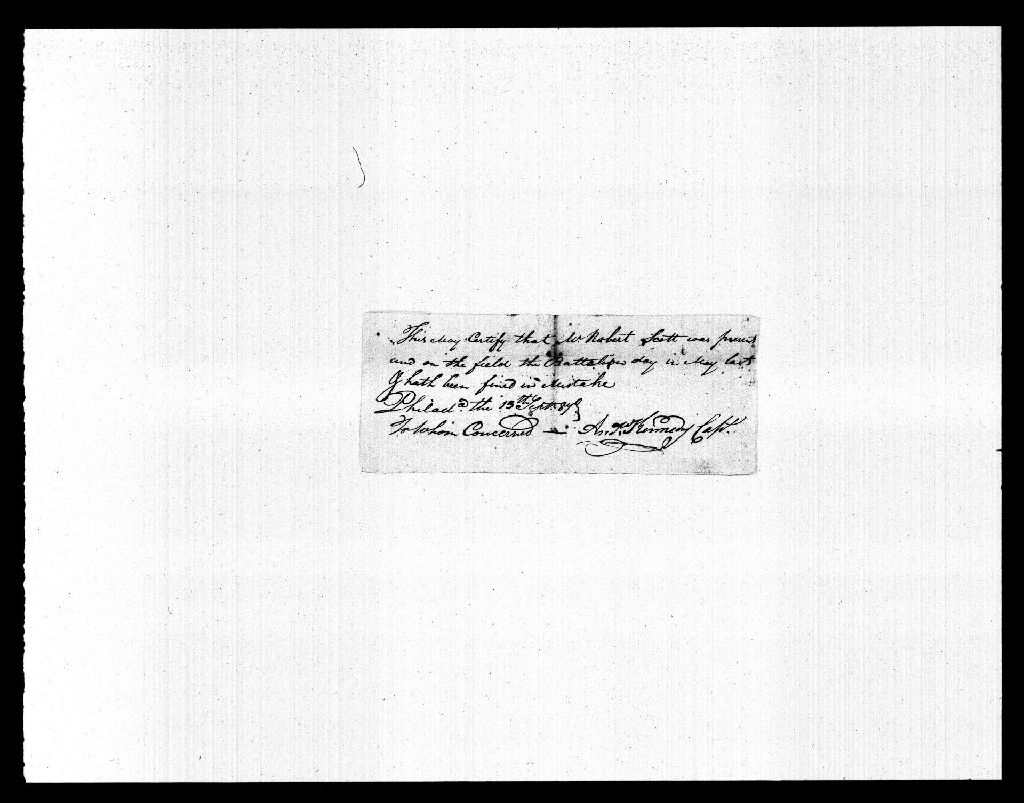 This May Certify that Mr Robert Scott was present
and on the field the Battalion day in May last
& hath been fined in Mistake
Philad.ª the 13th Sept.
To Whom Concerned Kennedy Capt.